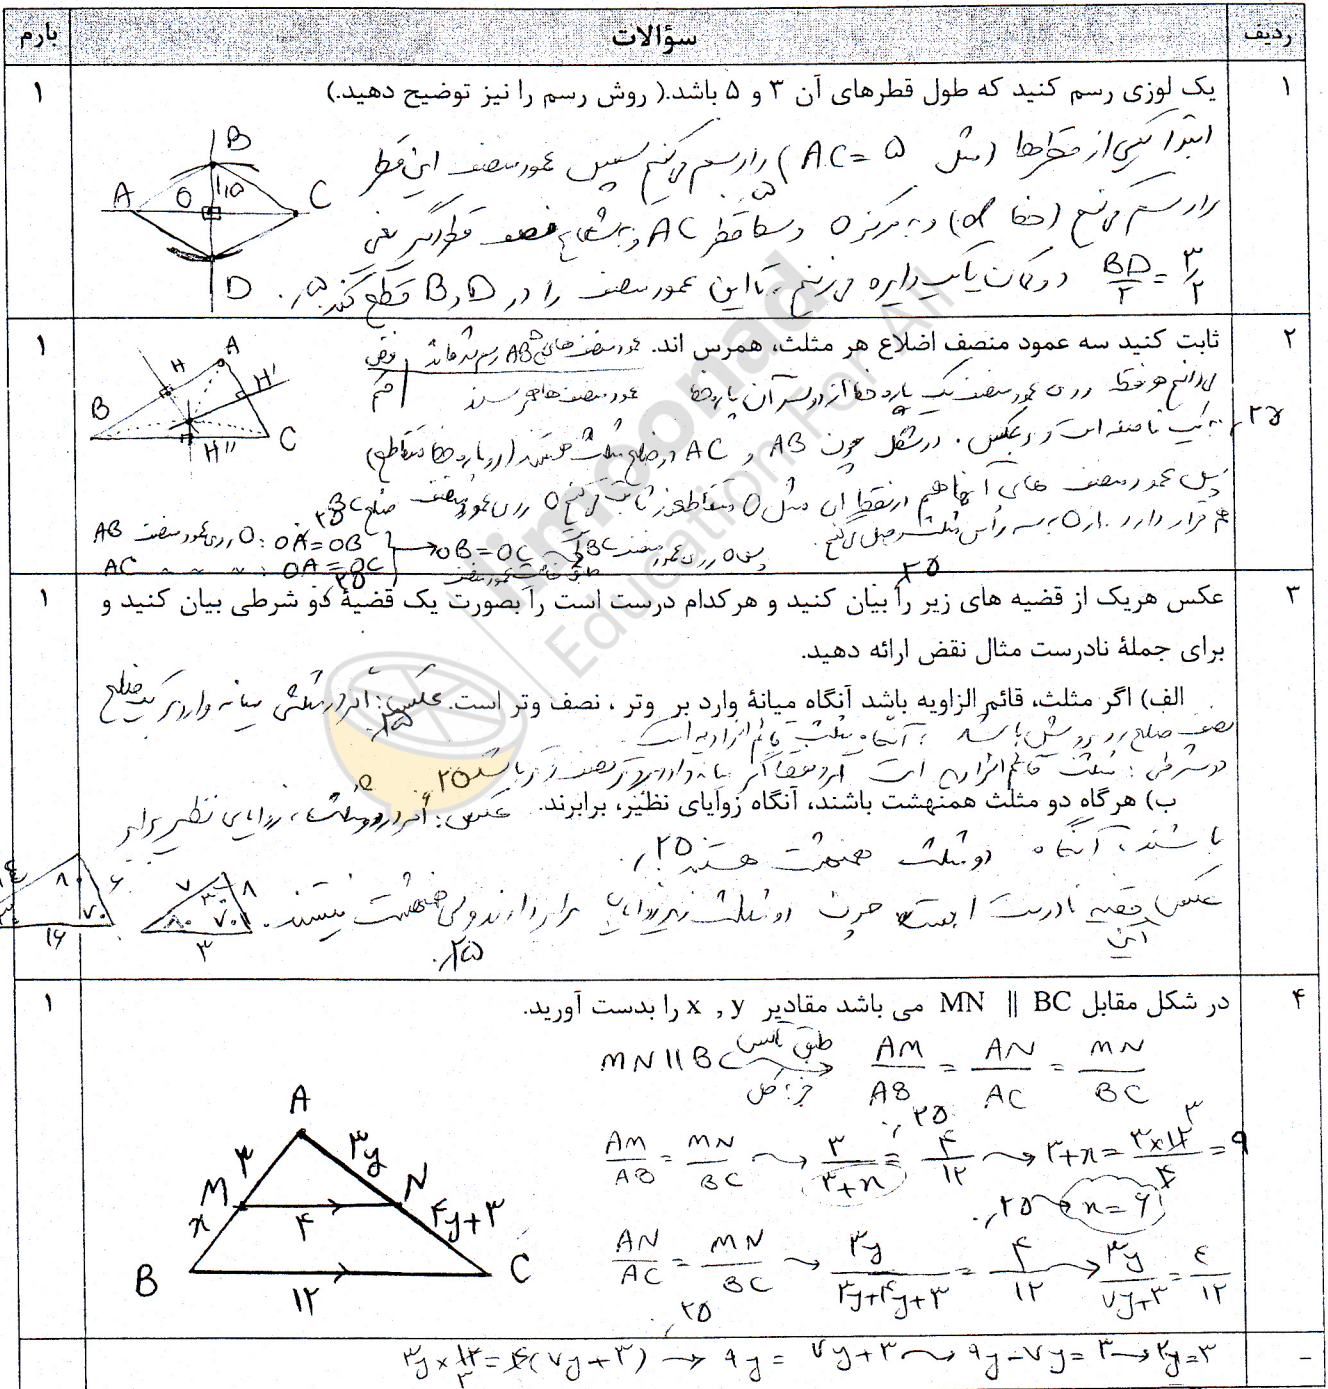 ردیف سؤالات بارم
۱ یک لوزی رسم کنید که طول قطرهای آن ۳ و ۵ باشد.( روش رسم را نیز توضیح دهید.) ۱
ابتدا یکی از قطرها (مثل AC = ۵) را رسم می‌کنیم سپس عمود منصف این قطر
را رسم می‌کنیم (خط d) و به مرکز O وسط قطر AC و به شعاع نصف قطر دیگر یعنی
BD/۲ = ۳/۲ دو کمان یا یک دایره می‌زنیم تا این عمود منصف را در D و B قطع کند.
A B C D O ۱/۵
۲ ثابت کنید سه عمود منصف اضلاع هر مثلث، همرس اند. ۱
عمود منصف‌ها همرسند حکم
می‌دانیم هر نقطه روی عمود منصف یک پاره خط از دو سر آن پاره خط
به یک فاصله است و برعکس. در شکل چون AB و AC دو ضلع مثلث هستند (دو پاره خط متقاطع)
پس عمود منصف های آنها هم در نقطه ای مثل O متقاطعند ثابت می‌کنیم O روی عمود منصف ضلع BC
هم قرار دارد. از O به سه رأس مثلث وصل می‌کنیم.
O روی عمود منصف AB : OA = OB
AC " " " " : OA = OC
→ OB = OC → پس O روی عمود منصف BC
A B C H H' H''
۳ عکس هریک از قضیه های زیر را بیان کنید و هرکدام درست است را بصورت یک قضیهٔ دو شرطی بیان کنید و ۱
برای جملهٔ نادرست مثال نقض ارائه دهید.
الف) اگر مثلث، قائم الزاویه باشد آنگاه میانهٔ وارد بر وتر ، نصف وتر است. عکس: اگر در مثلثی میانه وارد بر یک ضلع
نصف ضلع روبروش باشد ، آنگاه مثلث قائم الزاویه است
دو شرطی : مثلث قائم الزاویه است اگر و فقط اگر میانه وارد بر وتر نصف وتر باشد ۰/۲۵
ب) هرگاه دو مثلث همنهشت باشند، آنگاه زوایای نظیر، برابرند. عکس: اگر در دو مثلث ، زوایای نظیر برابر
باشند، آنگاه دو مثلث همنهشت هستند ۰/۲۵
عکس این قضیه نادرست است چون دو مثلث زیر زوایای برابر دارند ولی همنهشت نیستند. ۰/۲۵
۴ در شکل مقابل MN || BC می باشد مقادیر x , y را بدست آورید. ۱
MN || BC طبق تالس جز به کل → AM/AB = AN/AC = MN/BC
۰/۲۵
AM/AB = MN/BC → ۳/(۳+x) = ۴/۱۲ → ۳+x = ۳×۱۲/۴ = ۹
۰/۲۵ → x = ۶
AN/AC = MN/BC → ۳y/(۳y+۴y+۳) = ۴/۱۲ → ۳y/(۷y+۳) = ۴/۱۲
۰/۲۵
A M N B C ۳ ۳y x ۴ ۴y+۳ ۱۲
۳y × ۱۲ = ۴(۷y+۳) → ۹y = ۷y+۳ → ۹y-۷y = ۳ → ۲y = ۳
limoonad
Education For All